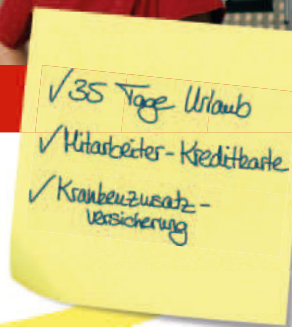 ✓ 35 Tage Urlaub
✓ Mitarbeiter-Kreditkarte
✓ Krankenzusatz-
versicherung